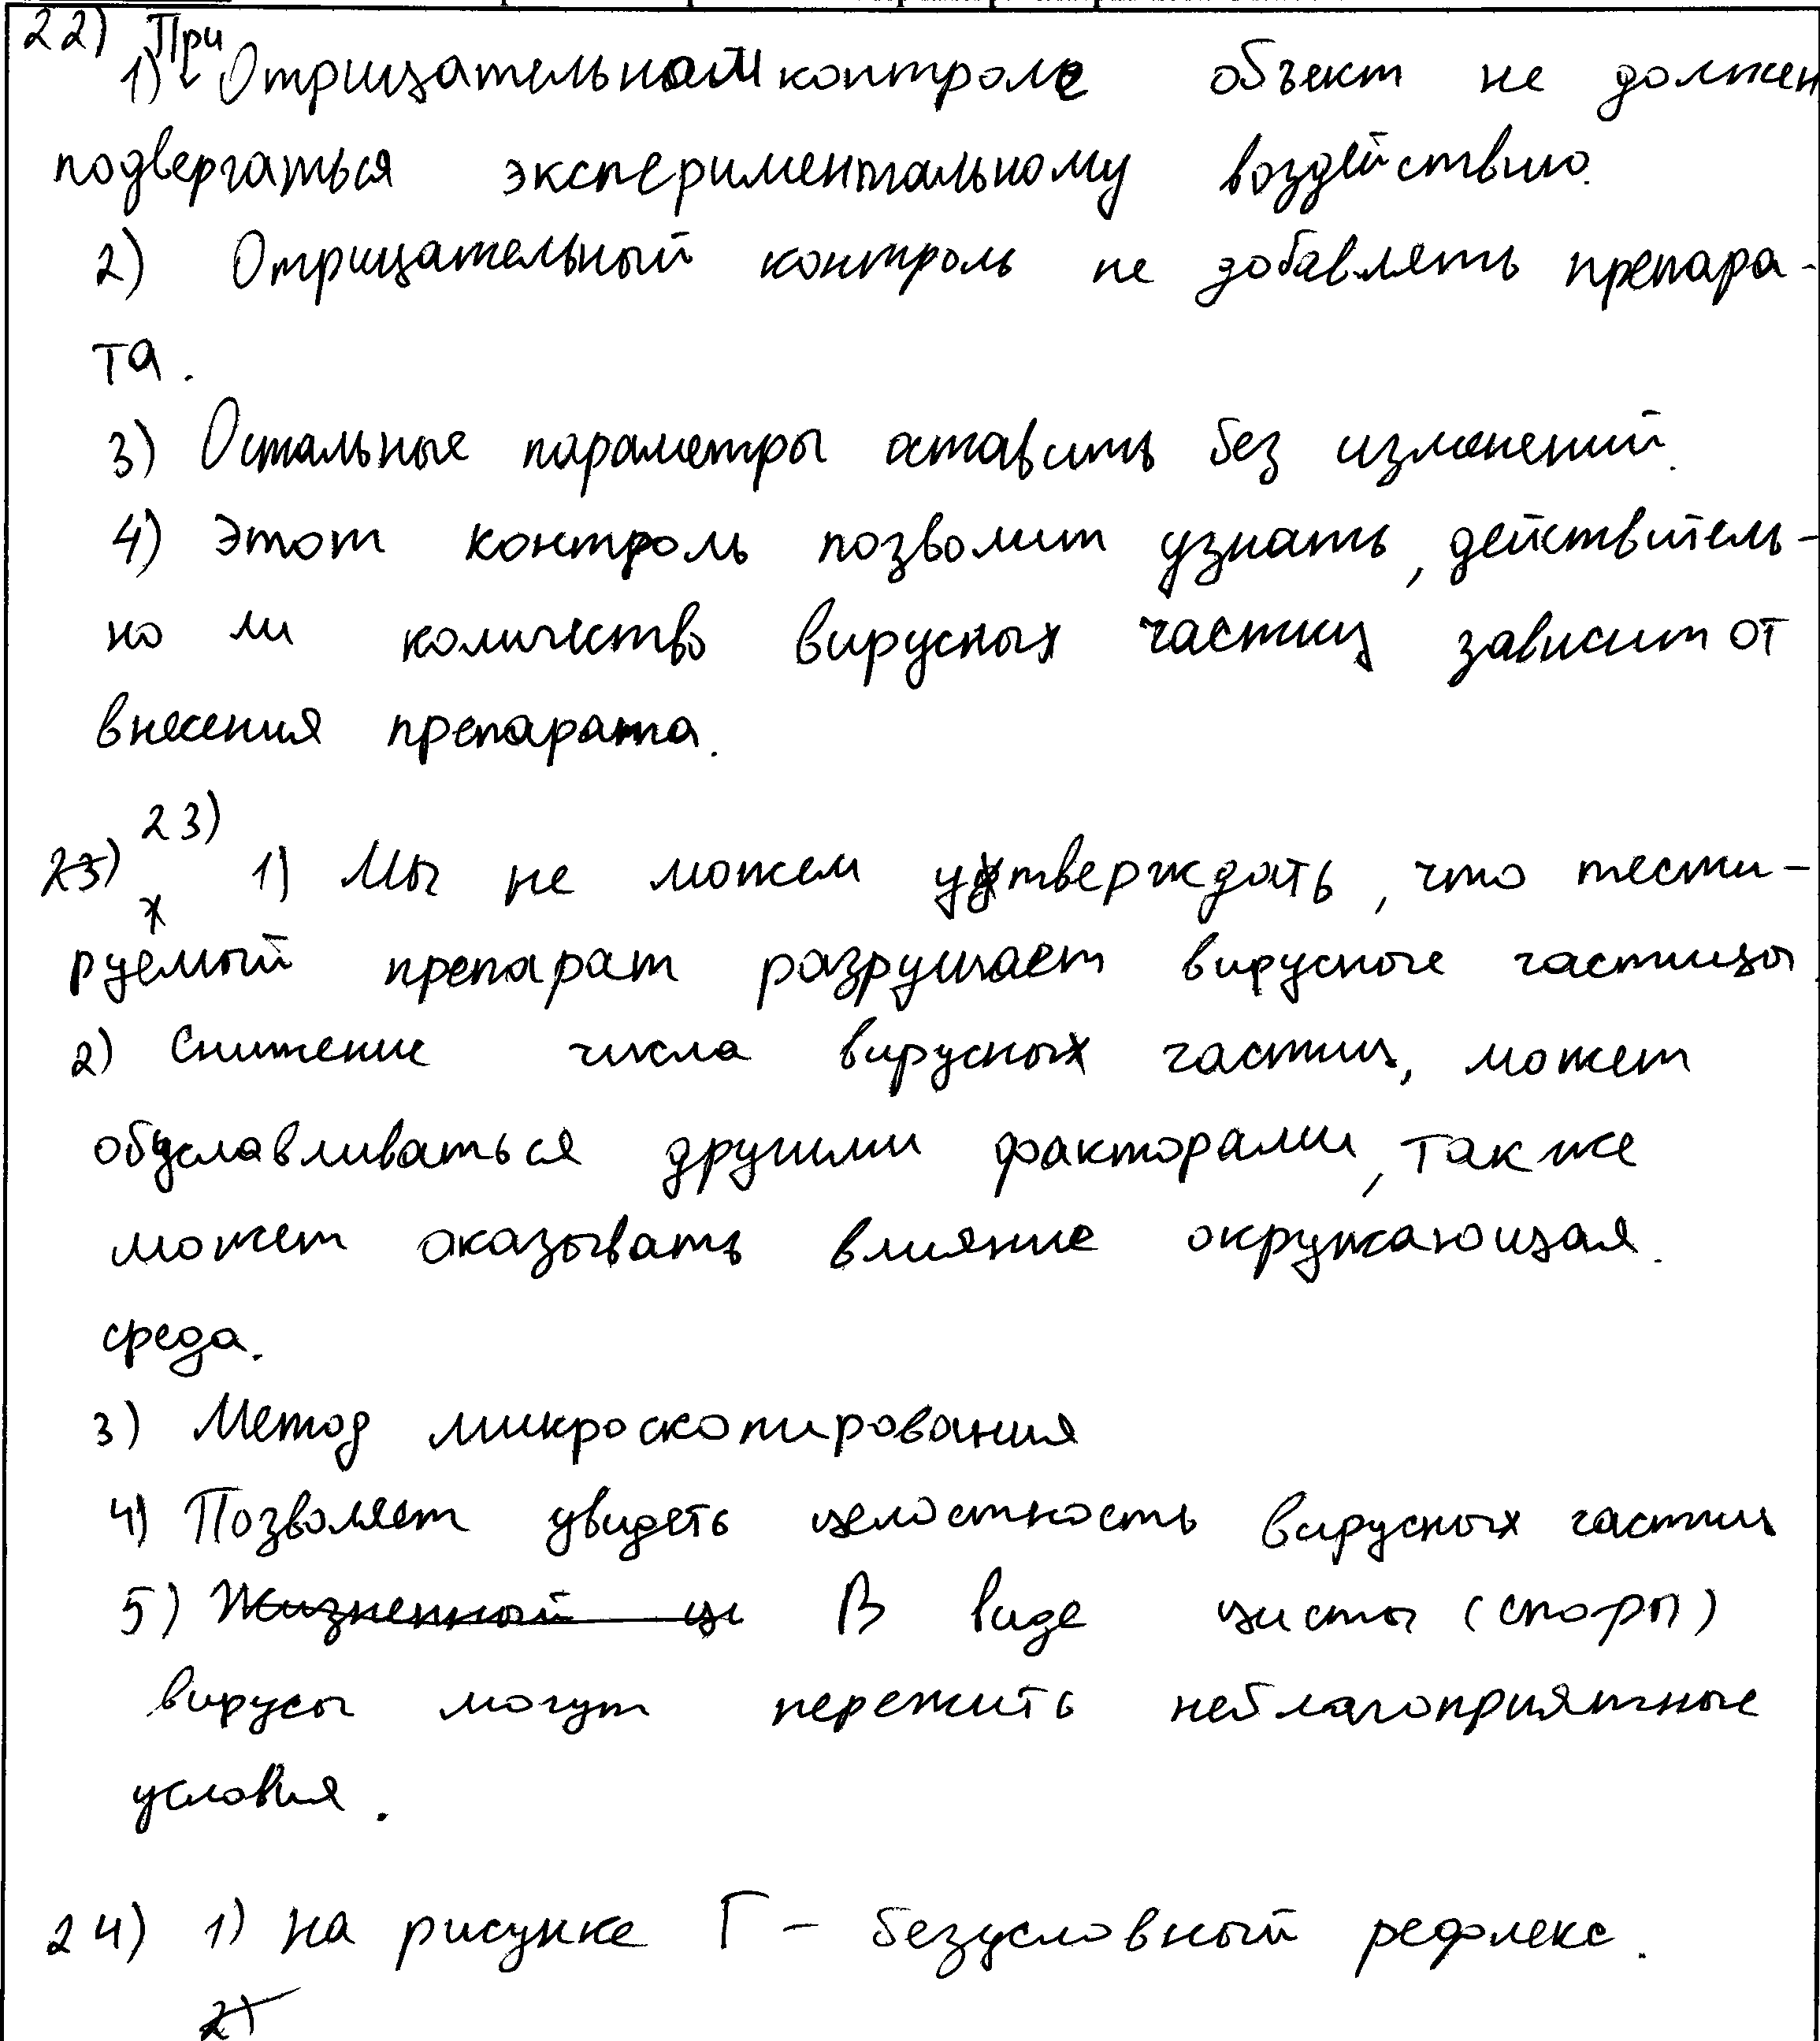 22) При
1) Отрицательном контроле объект не должен
подвергаться экспериментальному воздействию.
2) Отрицательный контроль не добавлять препара-
та.
3) Остальные параметры оставить без изменений.
4) Этот контроль позволит узнать, действитель-
но ли количество вирусных частиц зависит от
внесения препарата.
23)
23) 1) Мы не можем утверждать, что тести-
руемый препарат разрушает вирусные частицы
2) Снижение числа вирусных частиц, может
обуславливаться другими факторами, также
может оказывать влияние окружающая
среда.
3) Метод микроскопирования
4) Позволяет увидеть целостность вирусных частиц
5) Жизненный ци В виде цисты (споры)
вирусы могут пережить неблагоприятные
условия.
24) 1) На рисунке Г - безусловный рефлекс.
2)